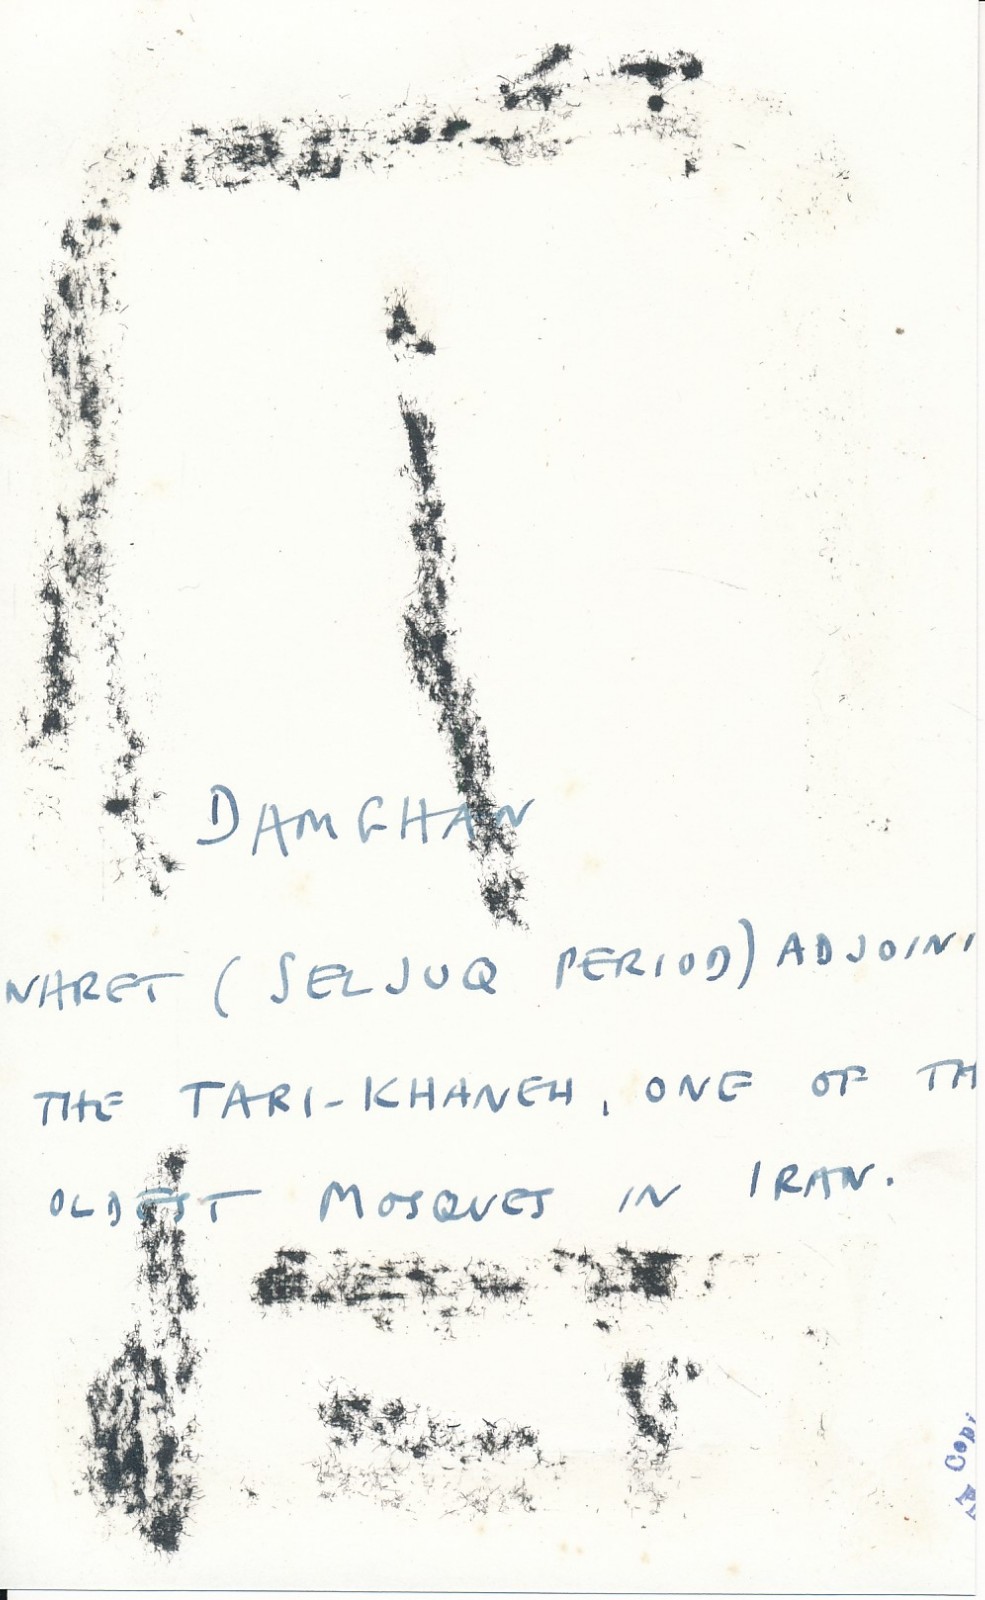 DAMGHAN
NARET (SELJUQ PERIOD) ADJOINI
THE TARI-KHANEH, ONE OF TH
OLDEST MOSQUES IN IRAN.